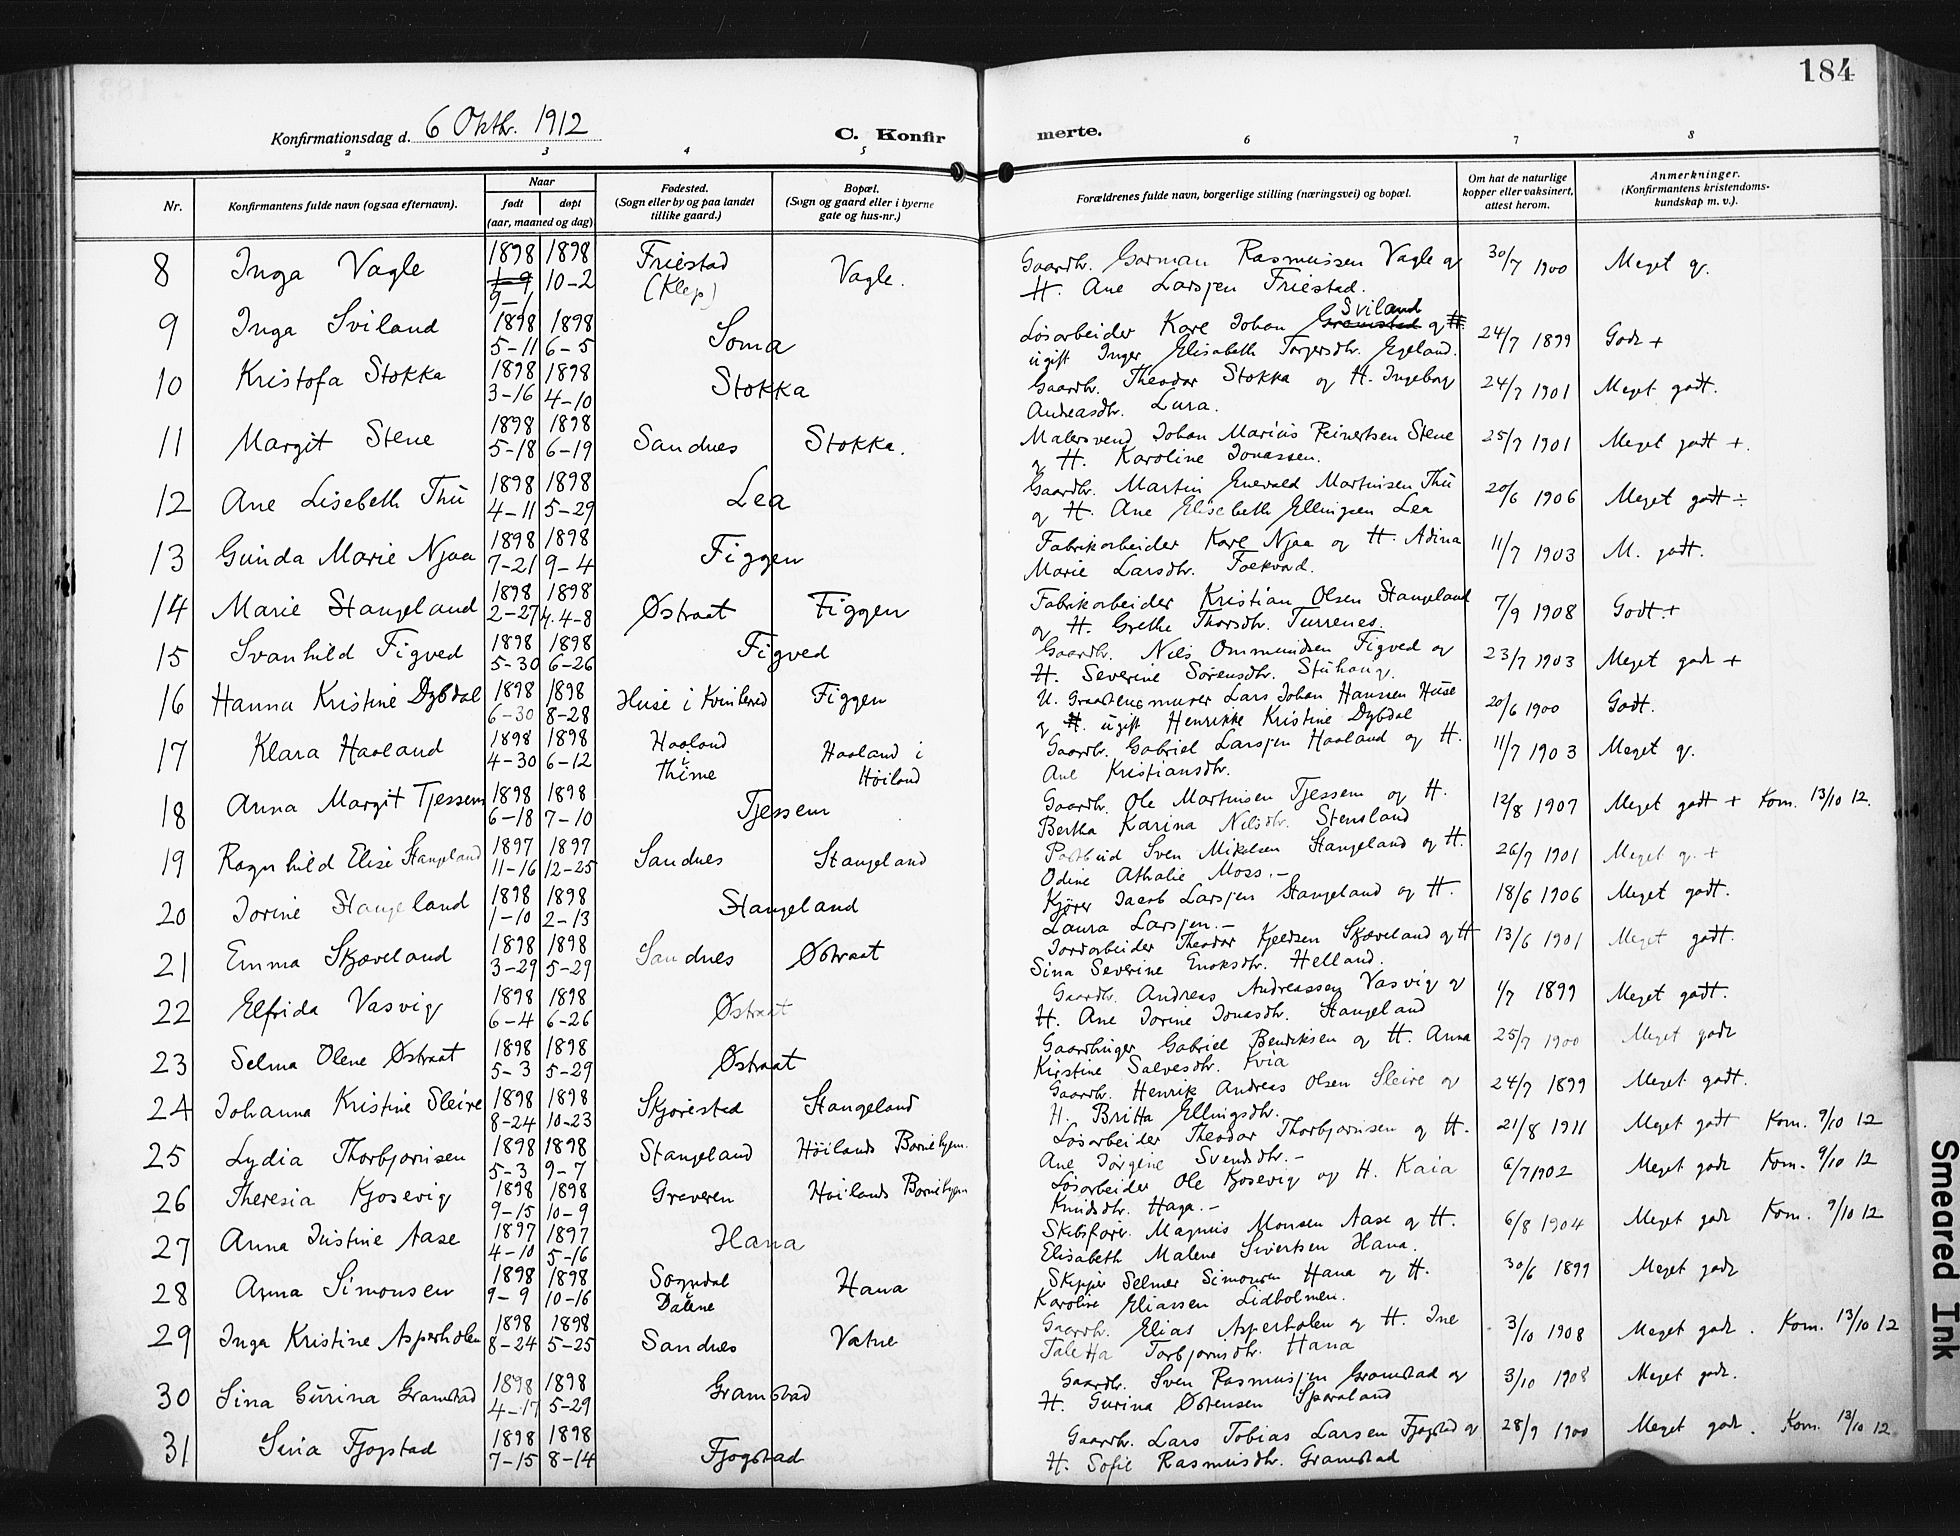 184
Konfirmationsdag d. 6 Oktbr. 1912
C. Konfir
merte.
2 3 4 5 6 7 8
Nr.
Konfirmantens fulde navn (ogsaa efternavn).
Naar
født døpt
(aar, maaned og dag)
Fødested.
(Sogn eller by og paa landet
tillike gaard.)
Bopæl.
(Sogn og gaard eller i byerne
gate og hus-nr.)
Forældrenes fulde navn, borgerlige stilling (næringsvei) og bopæl.
Om hat de naturlige
kopper eller vaksinert,
attest herom.
Anmerkninger.
(Konfirmantens kristendoms-
kundskap m. v.).
8 Inga Vagle 1898 1-9 9-1 1898 10-2 Friestad (Klep) Vagle.
Gaardbr. Gorman Rasmussen Vagle og
H. Ane Larsjen Friestad.
30/7 1900 Meget g.
9 Inga Sviland 1898 5-11 1898 6-5 Soma
Løsarbeider Karl Johan Gramstad Sviland og H.
ugift Inger Elisabeth Torgersdtr. Egeland.
24/7 1899 Godt +
10 Kristofa Stokka 1898 3-16 1898 4-10 Stokka
Gaardbr. Theodor Stokka og H. Ingeborg
Andreasdtr. Lura.
24/7 1901 Meget godt.
11 Margit Stene 1898 5-18 1898 6-19 Sandnes Stokka.
Malersvend Johan Marius Reinertsen Stene
og H. Karoline Jonassen.
25/7 1901 Meget godt +.
12 Ane Lisebeth Thu 1898 4-11 1898 5-29 Lea
Gaardbr. Martin Enevald Martinsen Thu
og H. Ane Elisebeth Ellingsen Lea
20/6 1906 Meget godt ÷
13 Gunda Marie Njaa 1898 7-21 1898 9-4 Figgen
Fabrikarbeider Karl Njaa og H. Adina
Marie Larsdtr. Foekvad.
11/7 1903 M. godt.
14 Marie Stangeland 1898 2-27 1898 4-8 Østraat Figgen
Fabrikarbeider Kristian Olsen Stangeland
og H. Grethe Thorsdtr. Turrenes.
7/9 1908 Godt.+
15 Svanhild Figved 1898 5-30 1898 6-26 Figved
Gaardbr. Nils Ommundsen Figved og
H. Severine Sørensdtr. Stuhaug.
23/7 1903 Meget godt +
16 Hanna Kristine Dybdal 1898 6-30 1898 8-28 Huse i Kvinherred Figgen
U. Graastensmurer Lars Johan Hanssen Huse
og H. ugift Henrikke Kristine Dybdal
20/6 1900 Godt.
17 Klara Haaland 1898 4-30 1898 6-12 Haaland i Thime Haaland i Høiland
Gaardbr. Gabriel Larsjen Haaland og H.
Ane Kristiansdtr.
11/7 1903 Meget g.
18 Anna Margit Tjessem 1898 6-18 1898 7-10 Tjessem
Gaardbr. Ole Martinsen Tjessem og H.
Bertha Karina Nilsdtr. Stensland
12/8 1907 Meget godt + Kom. 13/10 12.
19 Ragnhild Elise Stangeland 1897 11-16 1897 12-25 Sandnes Stangeland
Postbud Sven Mikelsen Stangeland og H.
Odine Athalie Moss.-
26/7 1901 Meget g. +
20 Jorine Stangeland 1898 1-10 1898 2-13 Stangeland
Kjører Jacob Larsjen Stangeland og H.
Laura Larsjen.-
18/6 1906 Meget godt.
21 Emma Skjæveland 1898 3-29 1898 5-29 Sandnes Østraat
Jordarbeider Theodor Kjeldsen Skjæveland og H
Sina Severine Enoksdtr. Helland.
13/6 1901 Meget godt.
22 Elfrida Vasvig 1898 6-4 1898 6-26 Østraat
Gaardbr. Andreas Andreassen Vasvig og
H. Ane Jorine Jonasdtr. Stangeland
1/7 1899 Meget godt.
23 Selma Olene Østraat 1898 5-3 1898 5-29 Østraat
Gaardbruger Gabriel Bendiksen og H. Anna
Kirstine Salvesdtr. Kvia
25/7 1900 Meget godt
24 Johanna Kristine Sleire 1898 8-24 1898 10-23 Skjørestad Stangeland
Gaardbr. Henrik Andreas Olsen Sleire og
H. Britta Ellingsdtr.
24/7 1899 Meget godt.
25 Lydia Thorbjørnsen 1898 5-3 1898 9-7 Stangeland Høilands Barnehjem.
Løsarbeider Theodor Thorbjørnsen og H.
Ane Jørgine Svendsdtr.-
21/8 1911 Meget godt Kom. 9/10 12
26 Theresia Kjosevig 1898 9-15 1898 10-9 Graveren Høilands Barnehjem
Løsarbeider Ole Kjosevig og H. Kaia
Knudsdtr. Haga.-
6/7 1902 Meget godt Kom. 9/10 12
27 Anna Justine Aase 1897 4-10 1897 5-16 Hana
Skibsfører. Magnus Monsen Aase og H.
Elisabeth Malene Sivertsen Hana.
6/8 1904 Meget godt Kom. 9/10 12
28 Anna Simonsen 1898 9-9 1898 10-16 Sogndal i Dalene Hana
Skipper Selmer Simonsen Hana og H.
Karoline Eliassen Lidholmen.
30/6 1899 Meget godt
29 Inga Kristine Asperholen 1898 8-24 1898 5-25 Sandnes Vatne
Gaardbr. Elias Asperholen og H. Ine
Taletta Torbjørnsdtr. Hana
3/10 1908 Meget godt. Kom. 13/10 12
30 Sina Gurina Gramstad 1898 4-17 1898 5-29 Gramstad
Gaardbr. Sven Rasmusjen Gramstad og
H. Gurina Østensen Sporaland
3/10 1908 Meget godt.
31 Sina Fjogstad 1898 7-15 1898 8-14 Fjogstad
Gaardbr. Lars Tobias Larsen Fjogstad og
H. Sofie Rasmusdtr. Gramstad
28/9 1900 Meget godt. Kom. 13/10 12
Smeared Ink